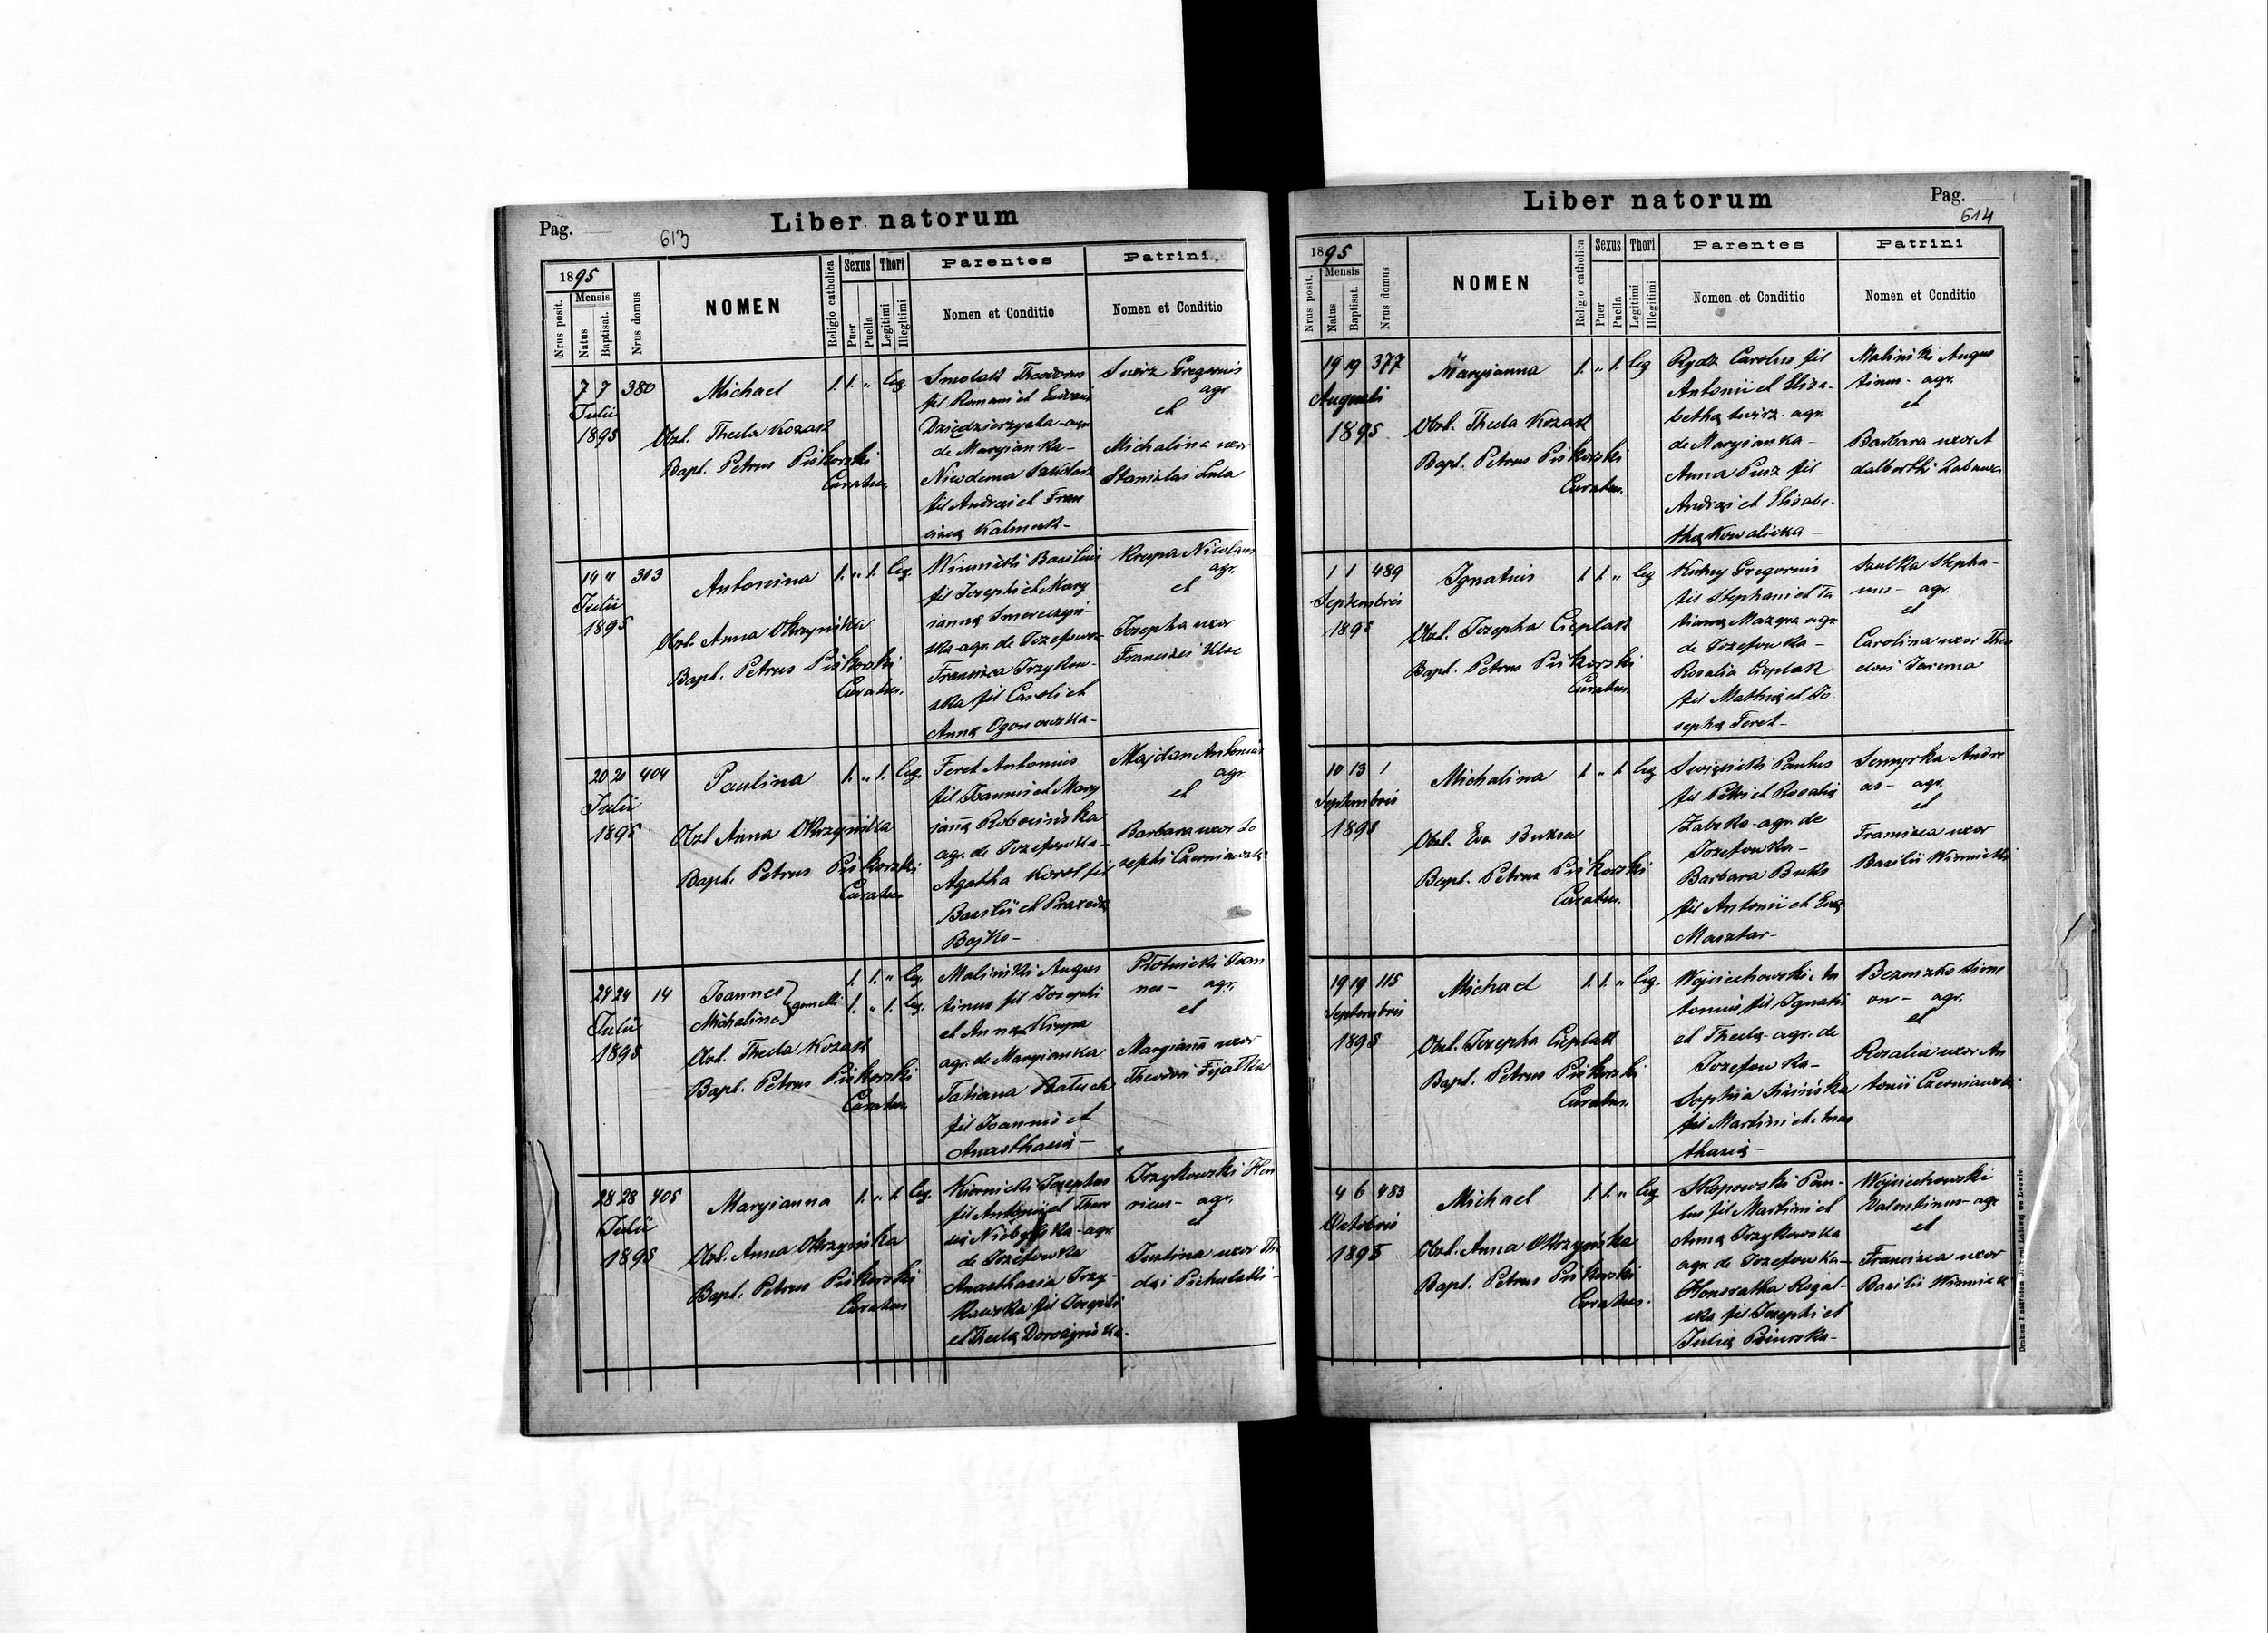 Pag.
613
Liber natorum
1895
Nrus posit.
Mensis
Natus
Baptisat.
Nrus domus
NOMEN
Religio catholica
Sexus
Puer
Puella
Thori
Legitimi
Illegitimi
Parentes
Nomen et Conditio
Patrini
Nomen et Conditio
7 7 380
Julii
1895
Michael
1. 1. „ leg.
Obst. Thecla Kozak
Bapt. Petrus Piskorski
Curatus.
Smolak Theodorus
fil Romani et
Dziędzierzycka - agr
de Maryianka -
fil Andreæ et Fran
ciscæ Kalmuk -
Swirz Gregorius
agr
et
Michalina uxor
Stanislai Lula
14 „ 303
Julii
1895
Antonina
1. „ 1. leg.
Obst. Anna Okrzyńska
Bapt. Petrus Piskorski
Curatus.
Winnicki Basilius
fil Josephi et Mary
iannæ Smereczyń-
ska - agr. de Jozefowka
Francisca Irzykow-
ska fil Caroli et
Annæ Ogonowska -
Krupa Nicolaus
agr.
et
Josepha uxor
Francisci Kloc
20 20 404
Julii
1895
Paulina
1. „ 1. leg.
Obst Anna Okrzyńska
Bapt. Petrus Piskorski
Curatus
Feret Antonius
fil Joannis et Mary
jannæ Robocińska
agr. de Jozefowka -
Agatha Korol fil
Basilii et Praxedæ
Bojko -
Majdan Antonius
agr.
et
Barbara uxor Jo
sephi Czerniawski
24 24 14
Julii
1895
Joannes
Michalina
gemelli
1. 1. „ leg.
1. „ 1. leg.
Obst. Thecla Kozak
Bapt. Petrus Piskorski
Curatus.
Maliński Augus
tinus fil Josephi
et Annæ Krupa
agr. de Maryianka
Tatiana Batuch
fil Joannis et
Anasthasiæ -
Płotnicki Joan
nes - agr.
et
Maryianna uxor
Theodori Fijałka
28 28 405
Julii
1895
Maryianna
1. „ 1. leg.
Obst. Anna Okrzyńska
Bapt. Petrus Piskorski
Curatus
Kiernicki Josephus
fil Antonii et There
siæ - agr
de Jozefowka
Anasthasia Irzy-
kowska fil Josephi
et Theclæ Dorożyńska.
Irzykowski Hen
ricus - agr.
et
Justina uxor Tha
dæi Pichulski -
Liber natorum
Pag.
614
1895
Nrus posit.
Mensis
Natus
Baptisat.
Nrus domus
NOMEN
Religio catholica
Sexus
Puer
Puella
Thori
Legitimi
Illegitimi
Parentes
Nomen et Conditio
Patrini
Nomen et Conditio
19 19 377
Augusti
1895
Maryianna
1. „ 1. leg
Obst. Thecla Kozak
Bapt. Petrus Piskorski
Curatus.
Rydz Carolus fil
Antonii et Elisa-
bethæ Swirz - agr.
de Maryianka -
Anna Pusz fil
Andreæ et Elisabe-
thæ Kowaliczka -
Maliński Augus
tinus - agr.
et
Barbara uxor A
dalberthi
1 1 489
Septembris
1895
Ignatius
1. 1. „ leg
Obst. Josepha Cieplak
Bapt. Petrus Piskorski
Curatus.
Kutny Gregorius
fil Stephani et Ta
tianæ Mazgra agr
de Jozefowka -
Rosalia Cieplak
fil Mathiæ et Jo
sephæ Feret -
Szulka Stepha-
nus - agr.
et
Carolina uxor Theo
dori Jarema
10 13 1
Septembris
1895
Michalina
1. „ 1. leg
Obst. Eva Buksa
Bapt. Petrus Piskorski
Curatus.
Święcicki Paulus
fil Petri et Rosaliæ
Zabska - agr. de
Jozefowka -
Barbara Buks
fil Antonii et Evæ
Masztar -
Semyrka Andre
as - agr.
et
Francisca uxor
Basilii Winnicki
19 19 115
Septembris
1895
Michael
1. 1. „ leg.
Obst. Josepha Cieplak
Bapt. Petrus Piskorski
Curatus.
Wojciechowski An
tonius fil Ignatii
et Theclæ - agr. de
Jozefowka -
Sophia
fil Martini et Anas
thasiæ -
Bezuszko Sime
on - agr.
et
Rosalia uxor An
tonii Czerniawski
4 6 483
Octobris
1895
Michael
1. 1. „ leg
Obst. Anna Okrzyńska
Bapt. Petrus Piskorski
Curatus.
Skopowski Pau-
lus fil Martini et
Annæ Irzykowska
agr. de Jozefowka -
Honoratha Rogal-
ska fil Josephi et
Juliæ
Wojciechowski
Valentinus - agr
et
Francisca uxor
Basilii Winnicki